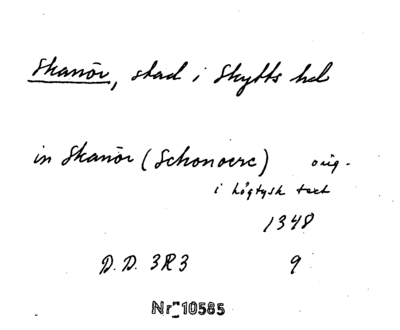 Skanör, stad i Skytts hd
in Skanör (Schonoere) orig.
i högtysk text
1348
D.D. 3R3 9
Nr 10585